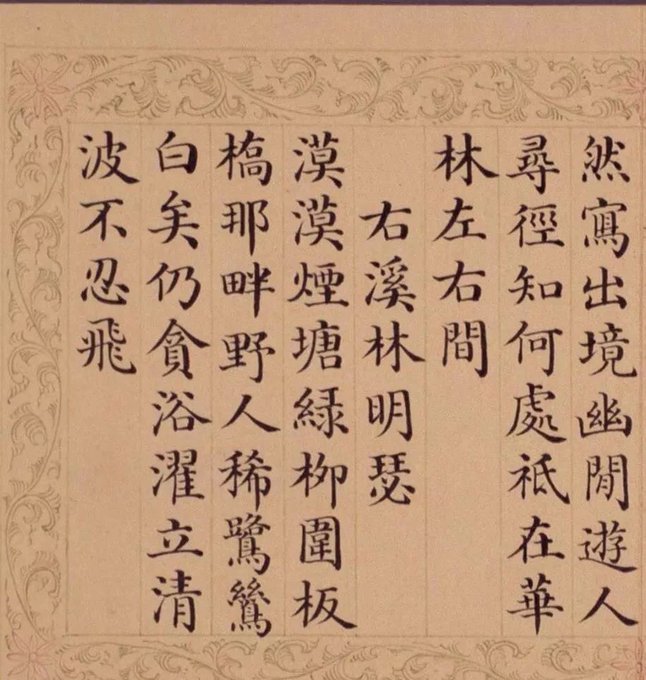 然寫出境幽閒遊人
尋徑知何處祗在華
林左右間
右溪林明瑟
漠漠煙塘緑栁圍板
橋那畔野人稀鷺鷥
白矣仍貪浴濯立清
波不忍飛